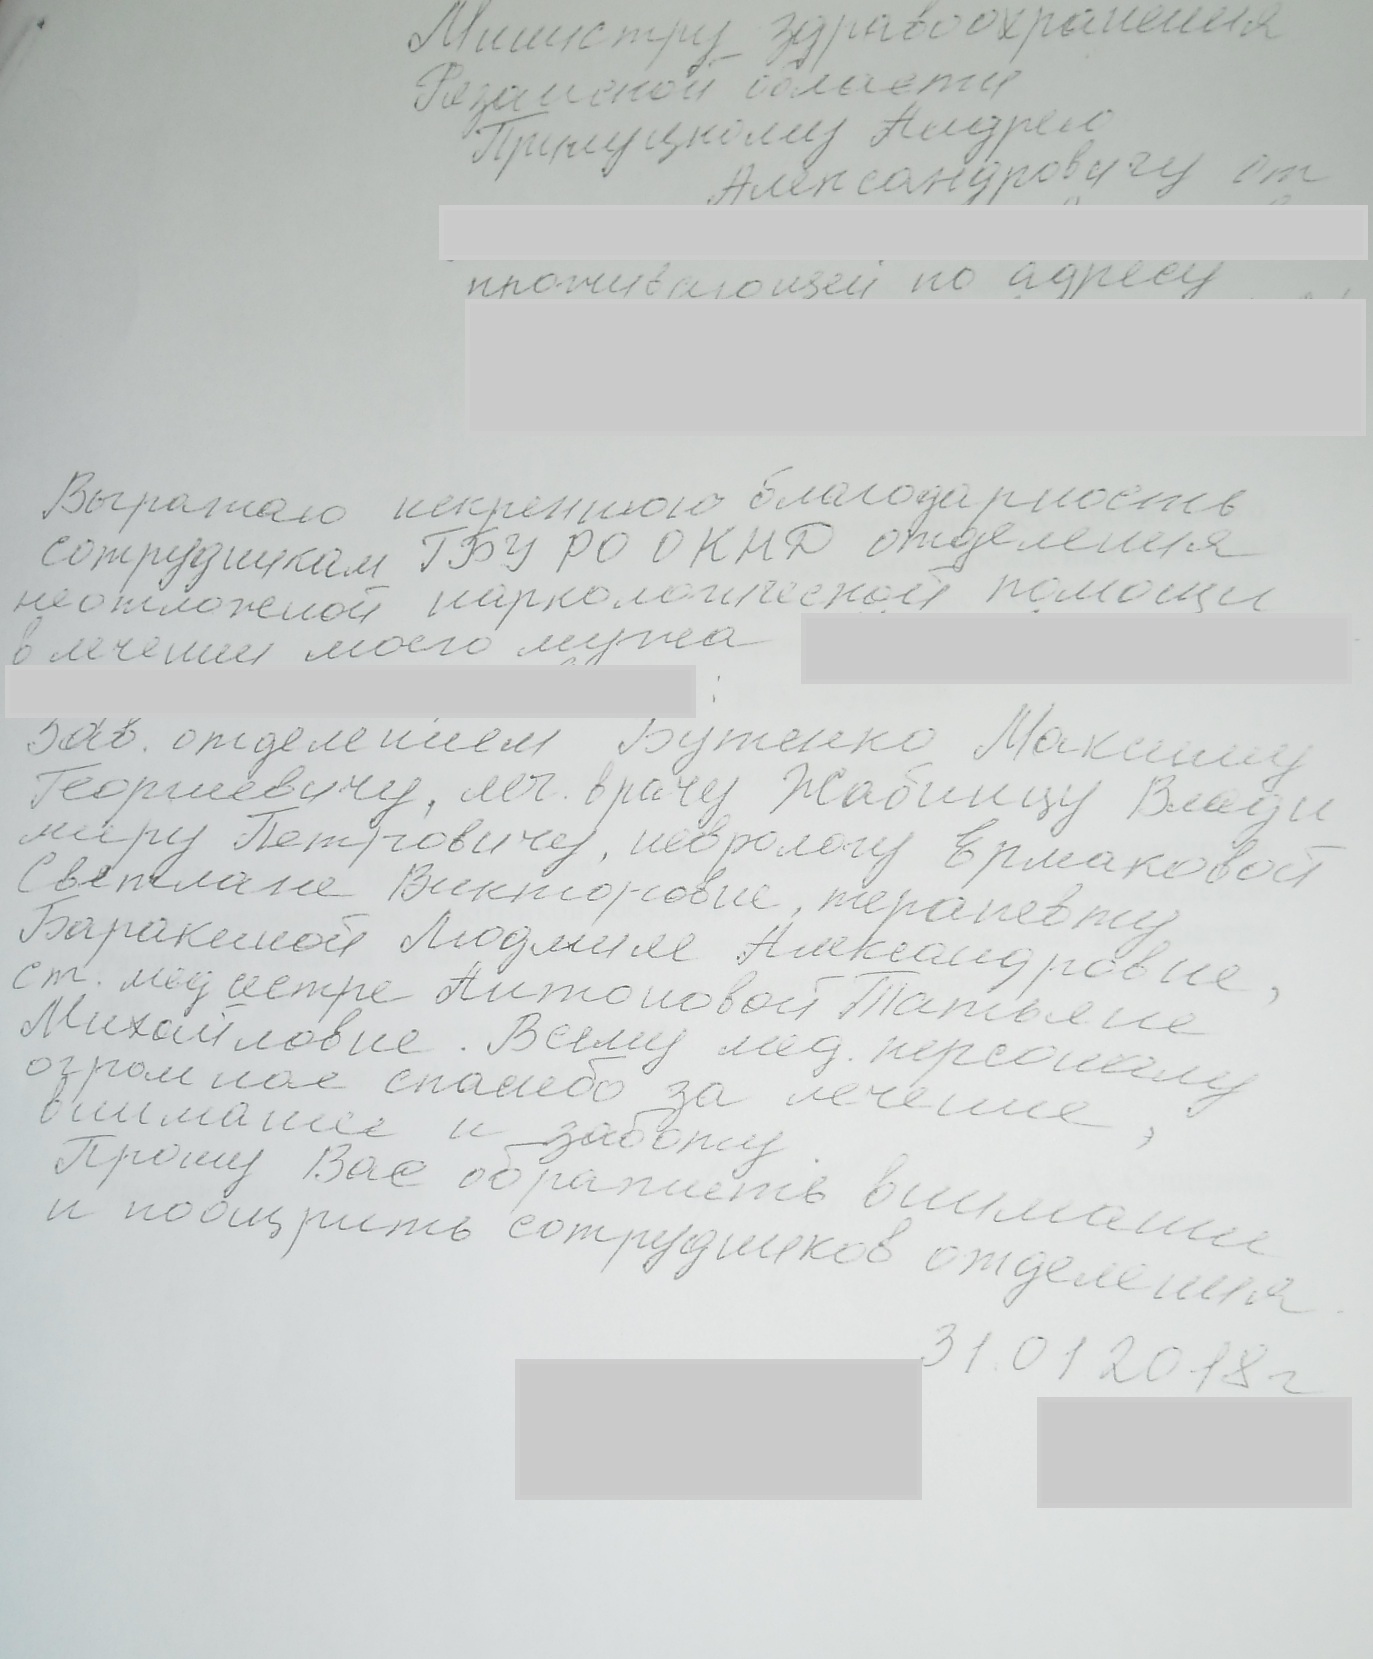 Министру здравоохранения
Рязанской области
Прилуцкому Андрею
Александровичу от
проживающей по адресу
Выражаю искреннюю благодарность
сотрудникам ГБУ РО ОКНД отделения
неотложной наркологической помощи
в лечении моего мужа
:
Зав. отделением Бутенко Максиму
Георгиевичу, леч. врачу Жабинцу Влади
миру Петровичу, неврологу Ермаковой
Светлане Викторовне, терапевту
Баракиной Людмиле Александровне,
ст. медсестре Антоновой Татьяне
Михайловне. Всему мед. персоналу
огромное спасибо за лечение,
внимание и заботу.
Прошу Вас обратить внимание
и поощрить сотрудников отделения.
31.01 2018 г